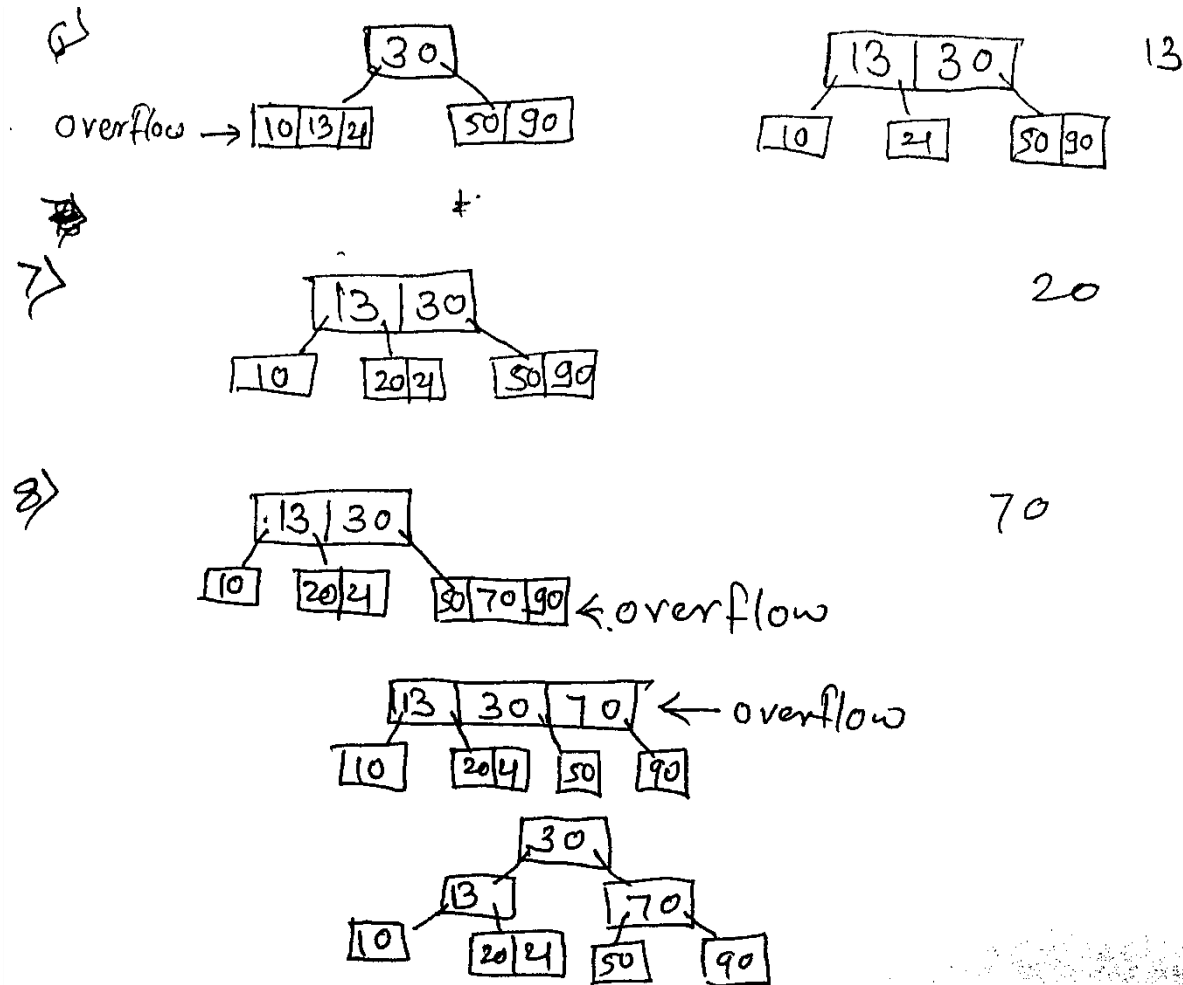 6)
30
13 | 30
13
overflow → 10 | 13 | 21
50 | 90
10
21
50 | 90
7)
13 | 30
20
10
20 | 21
50 | 90
8)
13 | 30
70
10
20 | 21
50 | 70 | 90
← overflow
13 | 30 | 70
← overflow
10
20 | 21
50
90
30
13
70
10
20 | 21
50
90